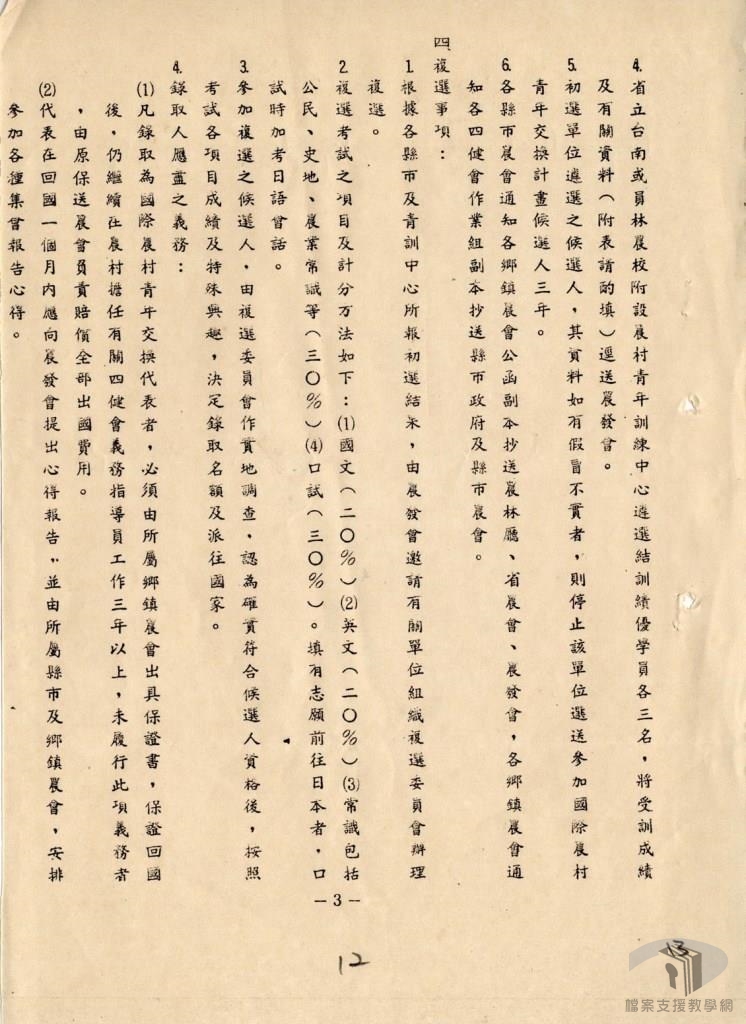 4.省立台南或員林農校附設農村青年訓練中心遴選結訓績優學員各三名，將受訓成績
及有關資料（附表請酌填）逕送農發會。
5.初選單位遴選之候選人，其資料如有假冒不實者，則停止該單位選送參加國際農村
青年交換計畫候選人三年。
6.各縣市農會通知各鄉鎮農會公函副本抄送農林廳、省農會、農發會，各鄉鎮農會通
知各四健會作業組副本抄送縣市政府及縣市農會。
四、複選事項：
1.根據各縣市及青訓中心所報初選結果，由農發會邀請有關單位組織複選委員會辦理
複選。
2.複選考試之項目及計分方法如下：(1)國文（二〇％）(2)英文（二〇％）(3)常識包括
公民、史地、農業常識等（三〇％）(4)口試（三〇％）。填有志願前往日本者，口
試時加考日語會話。
3.參加複選之候選人，由複選委員會作實地調查，認為確實符合候選人資格後，按照
考試各項目成績及特殊興趣，決定錄取名額及派往國家。
4.錄取人應盡之義務：
(1)凡錄取為國際農村青年交換代表者，必須由所屬鄉鎮農會出具保證書，保證回國
後，仍繼續在農村擔任有關四健會義務指導員工作三年以上，未履行此項義務者
，由原保送農會負責賠償全部出國費用。
(2)代表在回國一個月內應向農發會提出心得報告，並由所屬縣市及鄉鎮農會，安排
參加各種集會報告心得。
－3－
12
13
檔案支援教學網